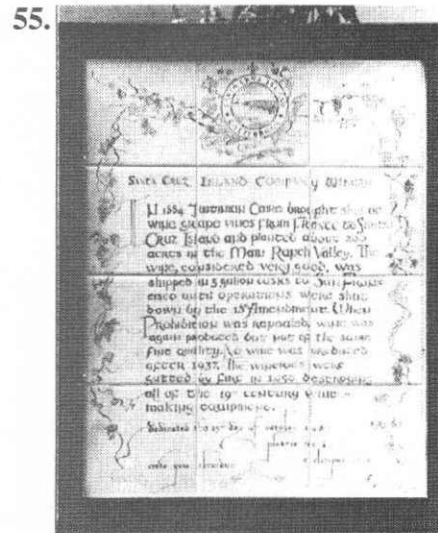 55.
SANTA CRUZ ISLAND COMPANY WINERY
IN 1884 Justinian Caire brought
wine grape vines from France to Santa
Cruz Island and planted about 200
acres in the Main Ranch Valley. The
wine, considered very good, was
shipped in 5 gallon casks to San Fran
cisco until operations were shut
down by the 18th Amendment. When
Prohibition was repealed, wine was
again produced but not of the same
fine quality. No wine was produced
after 1937. The wineries were
gutted by fire in 1950 destroying
all of the 19th century wine
making equipment.
Dedicated the day of